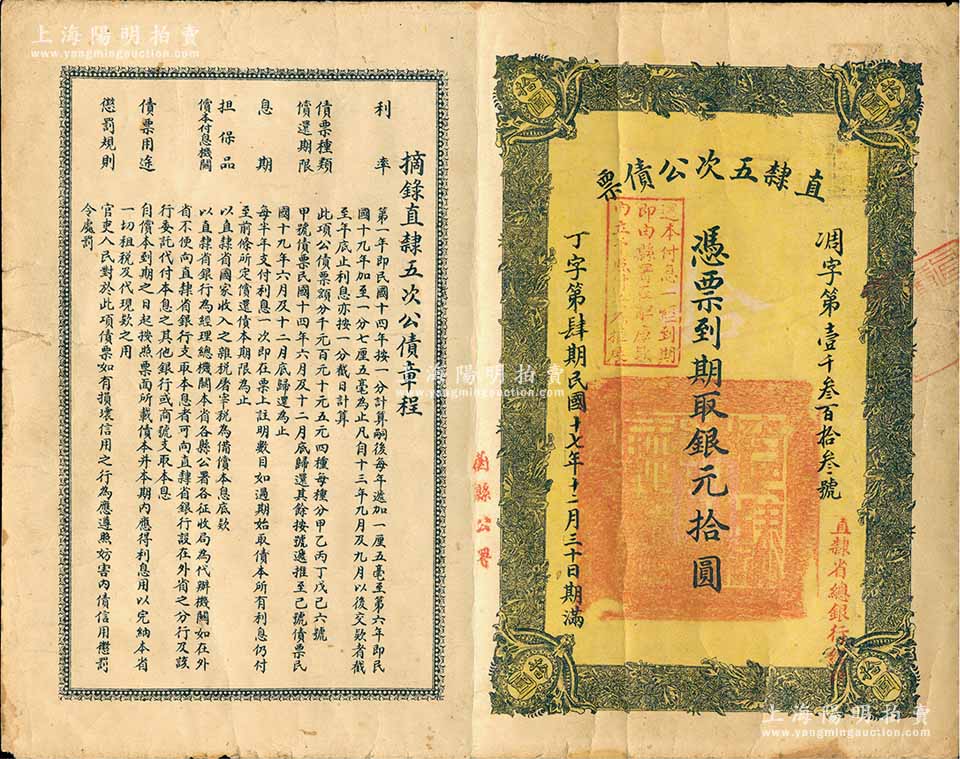 上海陽明拍賣
www.yangmingauction.com
拾圓
拾圓
直隸五次公債票
凋字第壹千叁百拾叁號
憑票到期取銀元拾圓
丁字第肆期民國十七年十二月三十日期滿
還本付息一經到期
即由縣署
直隸省總銀行
拾圓
拾圓
蘭縣公署
摘錄直隸五次公債章程
利率
第一年即民國十四年按一分計算嗣後每年遞加一厘五毫至第六年即民
國十九年加至一分七厘五毫為止凡自十三年九月及九月以後交款者截
至年底止利息亦按一分截日計算
債票種類
此項公債票額分千元百元十元五元四種每種分甲乙丙丁戊己六號
償還期限
甲號債票民國十四年六月及十二月底歸還其餘按號遞推至己號債票民
國十九年六月及十二月底歸還為止
息期
每半年支付利息一次即在票上註明數目如過期始取債本所有利息仍付
至前條所定償還債本期限為止
担保品
以直隸省國家收入之雜税屠宰税為備償本息底款
償本付息機關
以直隸省銀行為經理總機關本省各縣公署各征收局為代辦機關如在外
省不便向直隸省銀行支取本息者可向直隸省銀行設在外省之分行及該
行委託代付本息之其他銀行或商號支取本息
債票用途
自償本到期之日起按照票面所載債本并本期內應得利息用以完納本省
一切租税及代現款之用
懲罰規則
官吏人民對於此項債票如有損壞信用之行為應遵照妨害內債信用懲罰
令處罰
上海陽明拍賣
www.yangmingauction.com
上海陽明拍賣
www.yangmingauction.com